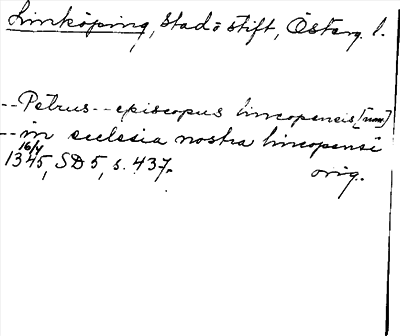 Linköping, stad o stift, Österg. l.
--Petrus--episcopus lincopensis [num]
--in ecclesia nostra lincopensi
16/4
1345, SD 5, s. 437. orig.